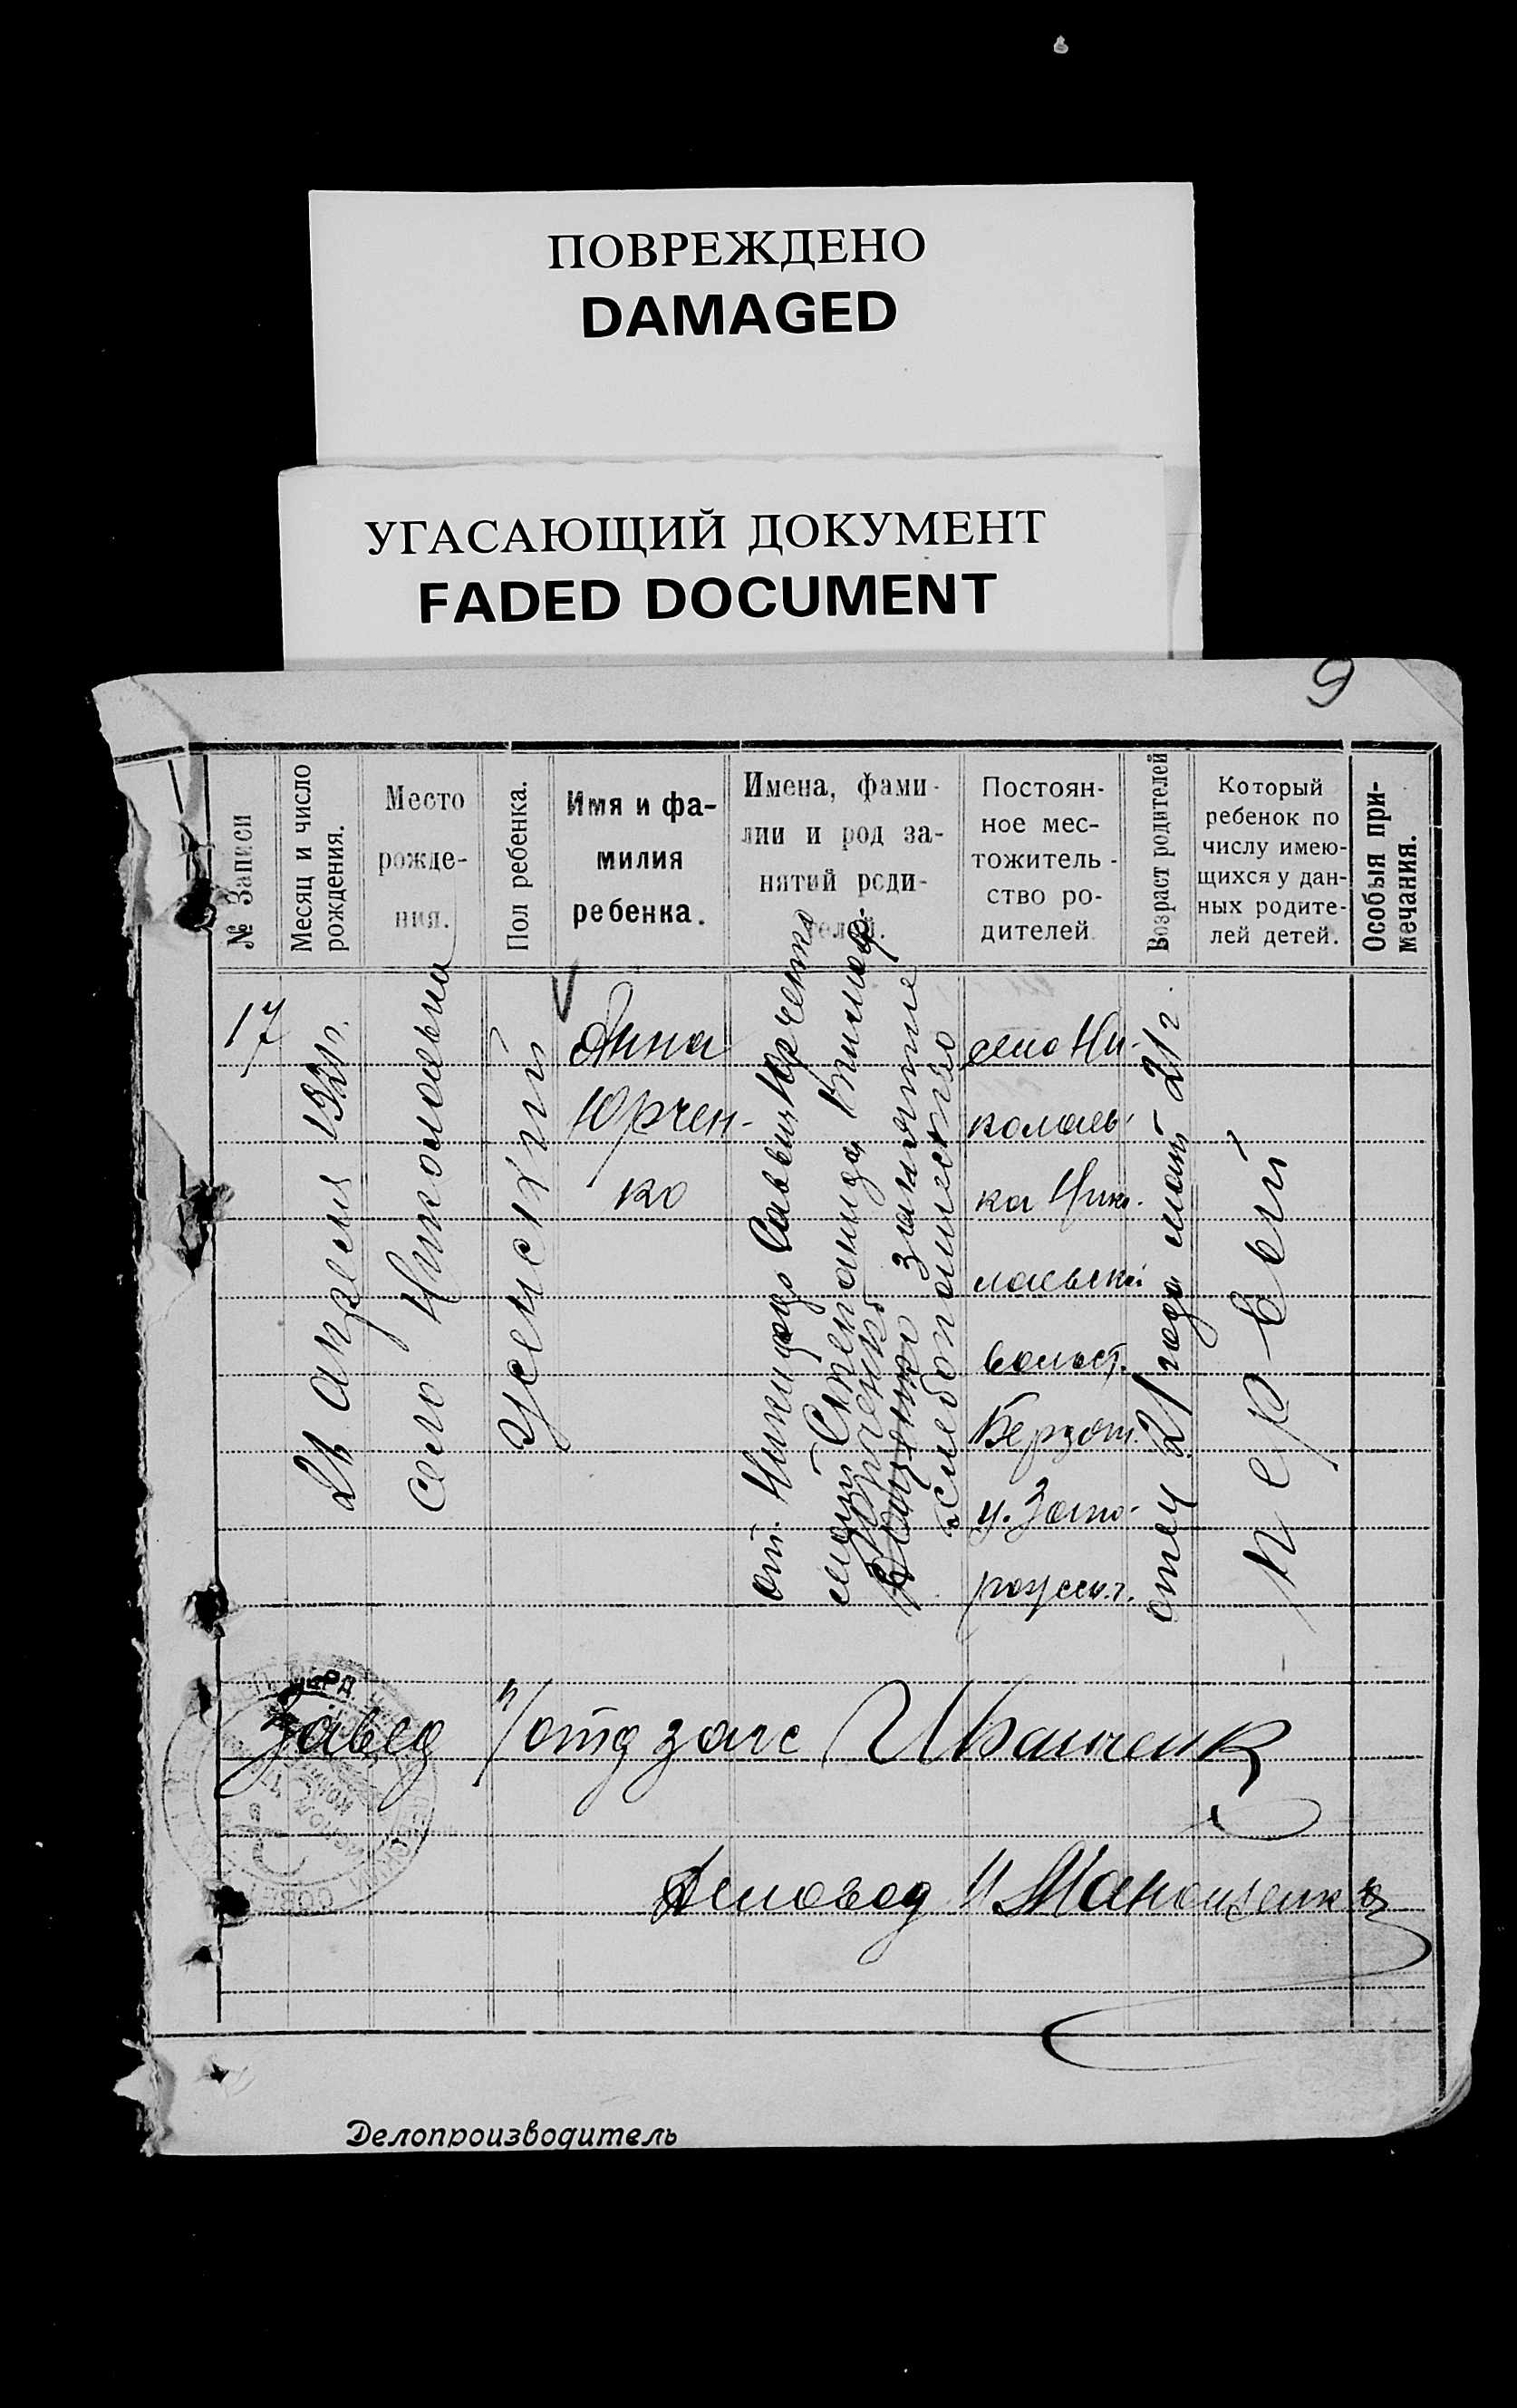 ПОВРЕЖДЕНО
DAMAGED
УГАСАЮЩИЙ ДОКУМЕНТ
FADED DOCUMENT
9
№ Записи
Месяц и число
рождения.
Место
рожде-
ния.
Пол ребенка.
Имя и фа-
милия
ребенка.
Имена, фами-
лии и род за-
нятий роди-
телей.
Постоян-
ное мес-
тожитель-
ство ро-
дителей
Возраст родителей
Который
ребенок по
числу имею-
щихся у дан-
ных родите-
лей детей.
Особыя при-
мечания.
17
апреля 1921 г.
село Николаевка
женский
Анна
Юрчен-
ко
от. Никифор Саввич Юрченко
мать Степанида
Юрченко
занятие
хлебопашество
село Ни-
колаев
ка Нико-
лаевской
волост.
Бердян.
у. Запо-
рожск. г.
отец 21 года мать 21 г.
первый
Завед п/отд загс Иванченк
Деловод И Маношенко
Делопроизводитель